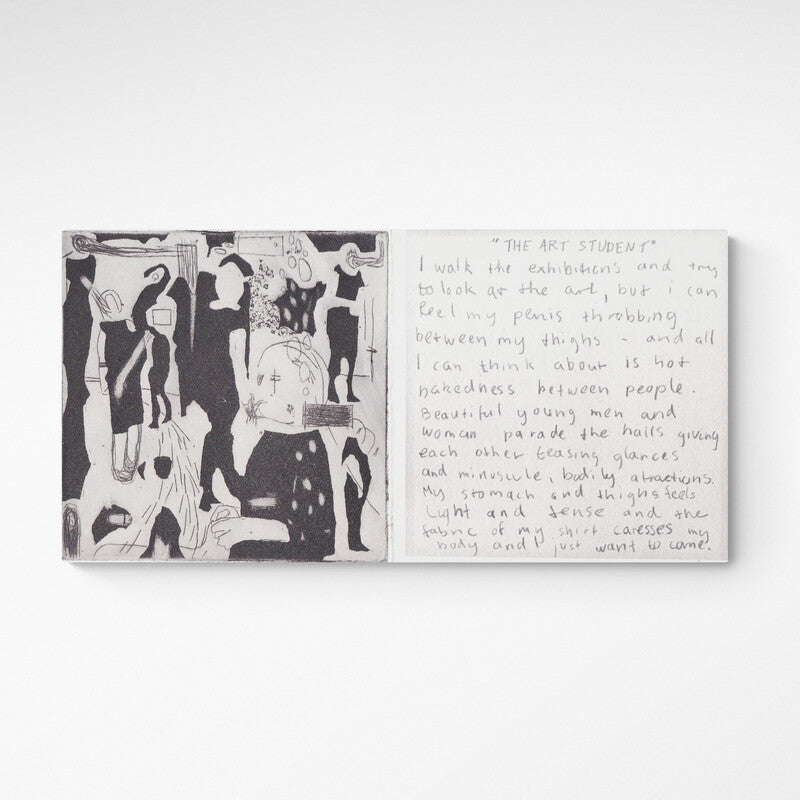 "THE ART STUDENT"
I walk the exhibitions and try
to look at the art, but i can
feel my penis throbbing
between my thighs - and all
I can think about is hot
nakedness between people.
Beautiful young men and
woman parade the halls giving
each other teasing glances
and minuscule, bodily atractions.
My stomach and thighs feels
light and tense and the
fabric of my shirt caresses my
body and I just want to came.